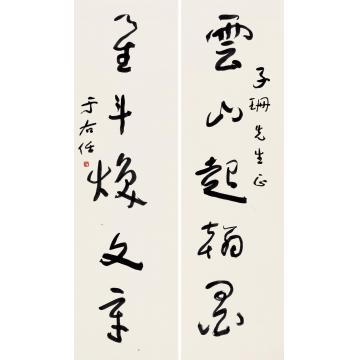 雲山起翰墨
子珊先生正
星斗煥文章
于右任